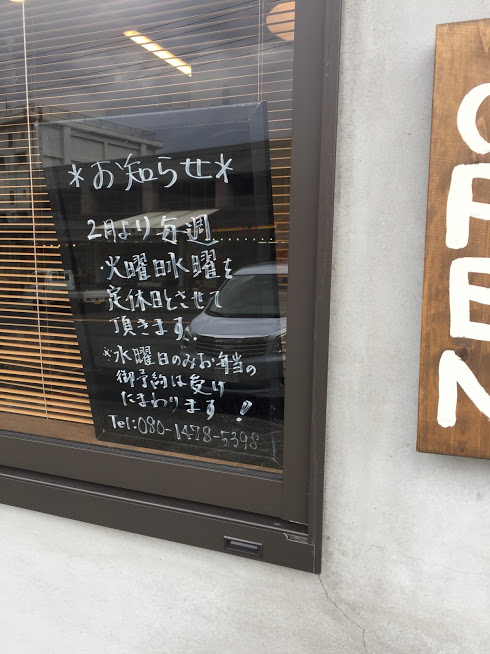 *お知らせ*
2月より毎週
・火曜日水曜を
定休日とさせて
頂きます、
*水曜日のみお弁当の
御予約は受け
たまわります!
Tel:080-1478-5398
OPEN